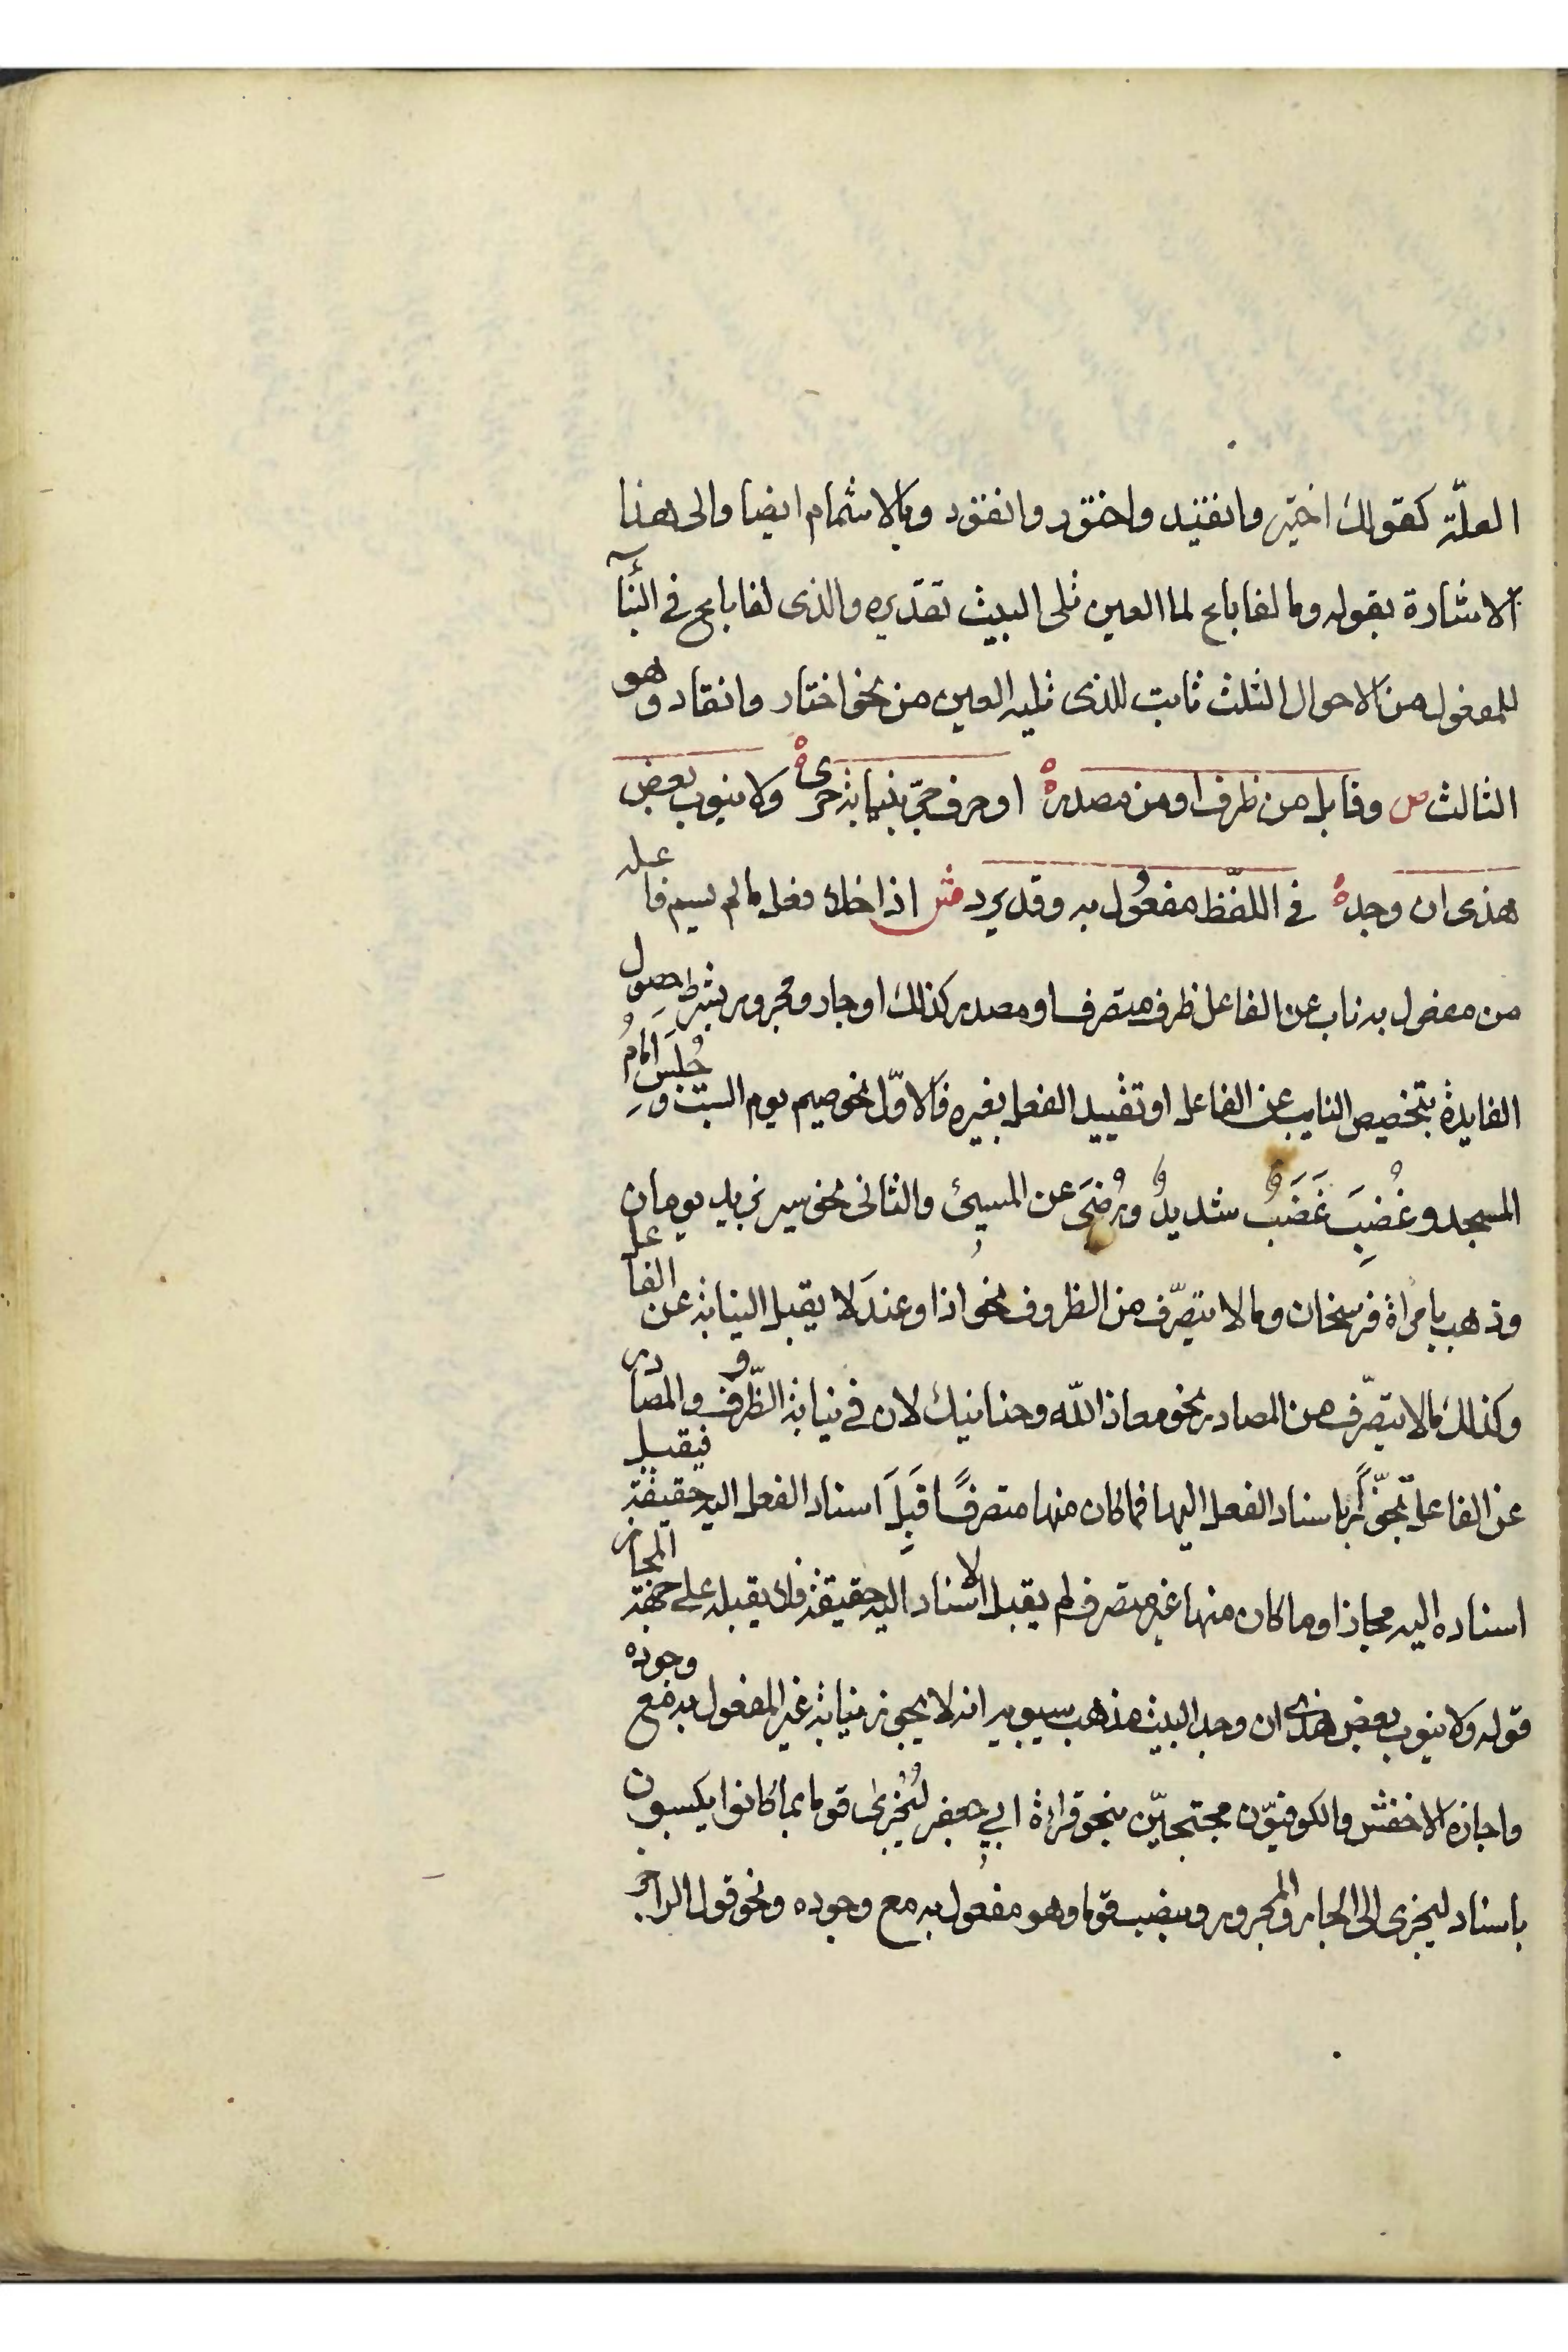 العلّة كقولك اختير وانقيد واختور وانقود وبالاشمام ايضا والى هذا
الاشارة بقوله وما لفا باع لما العين تلى البيت تقديره والذى لفا باع فى البنآء
للمفعول من الاحوال الثلث ثابت للذى تليه العين من نحو اختار وانقاد وهو
الثالث ص وقابل من ظرف او من مصدر ه او حرف جرّ بنيابة حرى ه ولا ينوب بعض
هذى ان وجد ه فى اللفّظ مفعُول به وقد يرد ش اذا خلا فعل ما لم يسم فاعله
من مفعول به ناب عن الفاعل ظرف متصرف او مصدر كذلك او جار ومجرور بشرط حصول
الفايدة بتخصيص النايب عن الفاعل او تقييد الفعل بغيره فالاوّل نحو صيم يوم السبت وجُلِسَ امَامُ
المسجد وغُضِبَ غَضَبٌ شديدٌ ورُضىَ عن المسيئ والثانى نحو سير بزيد يومان
وذهب بامراة فرسخان وما لا يتصرّف من الظروف نحو اذا وعند لا يقبل النيابة عن الفاعل
وكذلك ما لا يتصرّف من المصادر نحو معاذ الله وحنانيك لان فى نيابة الظّروف والمصادر
عن الفاعل تجوّزًا باسناد الفعل اليها فما كان منها متصرفًا قَبِلَ اسناد الفعل اليه حقيقة فيقبل
اسناده اليه مجازا وما كان منها غير متصرف لم يقبل الاسناد اليه حقيقة فلا يقبله على جهة المجاز
قوله ولا ينوب بعض هذى ان وجد البيت مذهب سيبويه انه لا يجوز نيابة غير المفعول به مع وجوده
واجازه الاخفش والكوفيّون محتجيّن بنحو قراءة ابي جعفر لِيُجْزىَ قوما بما كانوا يكسبون
باسناد ليجزى الى الجار والمجرور وينصب قوما وهو مفعُول به مع وجوده ونحو قول الراجز